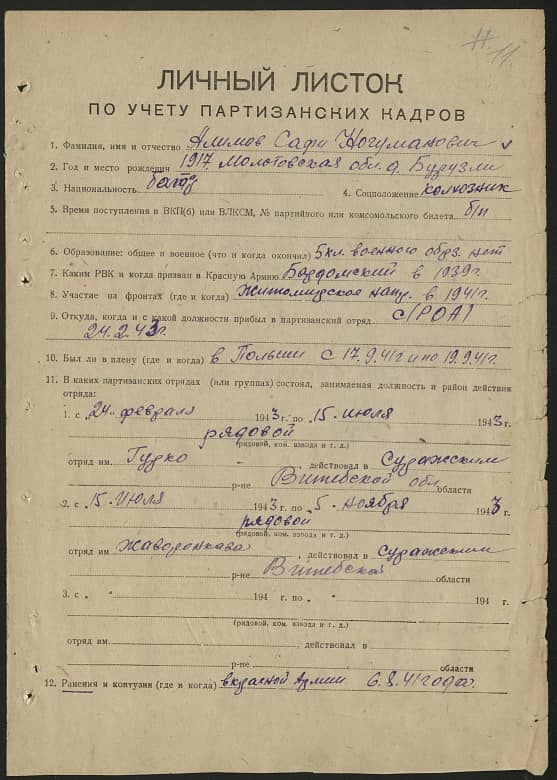 11.
ЛИЧНЫЙ ЛИСТОК
ПО УЧЕТУ ПАРТИЗАНСКИХ КАДРОВ
1. Фамилия, имя и отчество Алимов Сафи Ногуманович
2. Год и место рождения 1917. Молотовская обл. д.
3. Национальность 4. Соцположение колхозник
5. Время поступления в ВКП(б) или ВЛКСМ, № партийного или комсомольского билета б/п
6. Образование: общее и военное (что и когда окончил) 5 кл. военного обрз. нет
7. Каким РВК и когда призван в Красную Армию Бардомский в 1939г.
8. Участие на фронтах (где и когда) Житомирское напр. в 1941г.
9. Откуда, когда и с какой должности прибыл в партизанский отряд с/РОА/
24.2.43г.
10. Был ли в плену (где и когда) в Польши с 17.9.41г и по 19.9.41г.
11. В каких партизанских отрядах (или группах) состоял, занимаемая должность и район действия
отряда:
1. с „24„ февраля 1943 г. по „15„ июля 1943 г.
рядовой
(рядовой, ком. взвода и т. д.)
отряд им. Гудко , действовал в Суражским
р-не Витебской обл области
2. с „15„ июля 1943 г. по „5„ ноября 1943 г.
рядовой
(рядовой, ком. взвода и т. д.)
отряд им. Жаворонкава , действовал в Суражским
р-не Витебской области
3. с „ “ 194 г. по „ “ 194 г.
(рядовой, ком. взвода и т. д.)
отряд им. , действовал в
р-не области
12. Ранения и контузии (где и когда) в красной Армии 6.8.41 года.